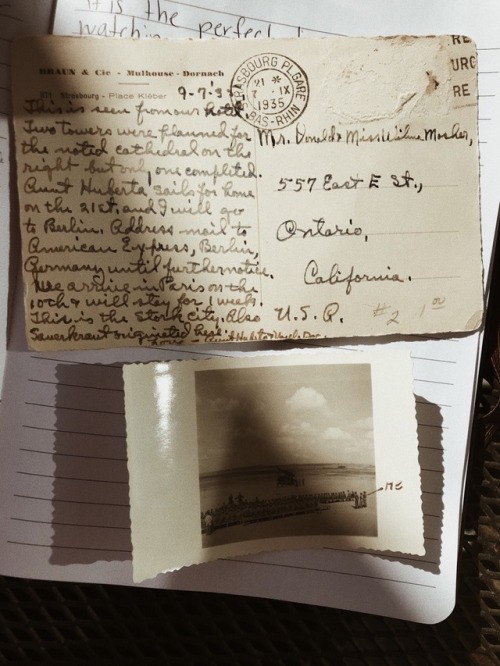 it is the perfect
watching
BRAUN & Cie - Mulhouse-Dornach
871 Strasbourg - Place Kléber
9-7'35
This is seen from our hotel
Two towers were planned for
the noted cathedral on the
right but only one completed.
Aunt Huberta sails for home
on the 21st. and I will go
to Berlin. Address mail to
American Express, Berlin,
Germany until further notice.
We arrive in Paris on the
10th & will stay for 1 week.
This is the Stork city. Also
Sauerkraut originated here.
Love - Aunt Huberta
STRASBOURG PL. GARE
21 *
7 - IX
1935
BAS-RHIN
RE
URG
RE
Mr. Donald & Miss Wilma Mosher,
557 East E St.,
Ontario,
California.
U.S.A.
#2 1 00
ME